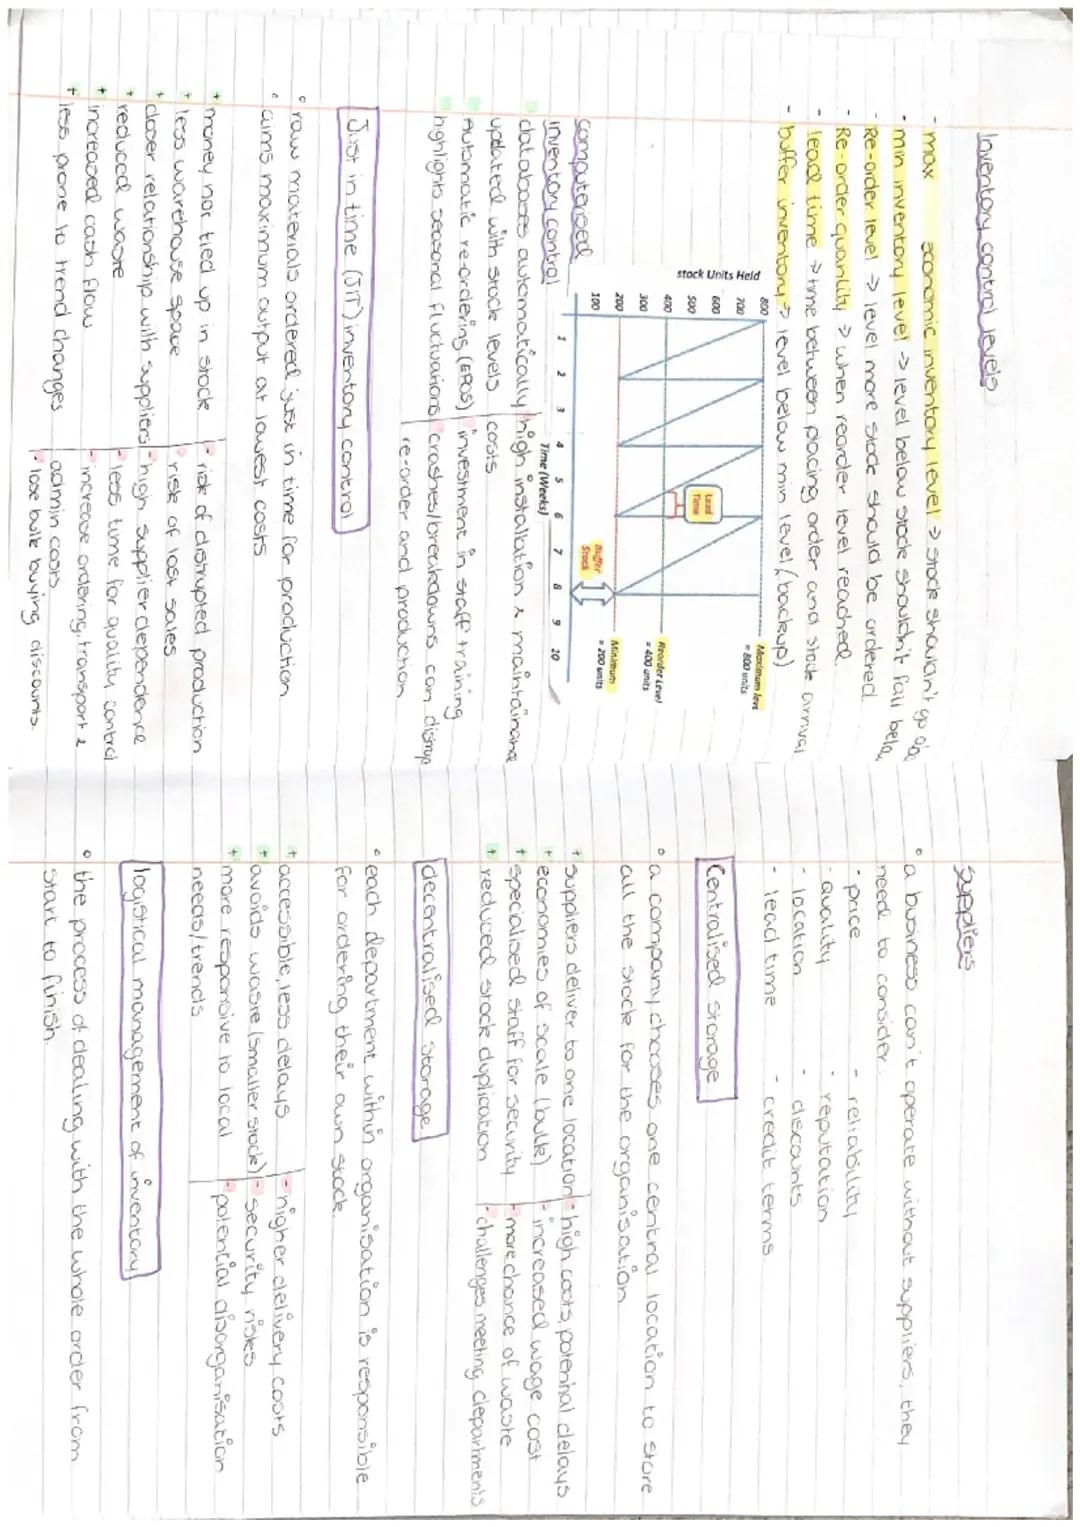 Inventory control levels
- max economic inventory level → stock shouldn't go
- min inventory level → level below stock shouldn't fall below
- Re-order level → level more stock should be ordered
- Re-order quantity → when reorder level reached
- lead time → time between placing order and stock arrival
- buffer inventory → level below min level (backup)
stock Units Held
800
700
600
500
400
300
200
100
1 2 3 4 5 6 7 8 9 10
Time (Weeks)
Lead Time
Buffer Stock
Maximum level
= 800 units
Reorder Level
= 400 units
Minimum
= 200 units
computerised
inventory control
databases automatically
updated with stock levels
Automatic re-ordering (EPOS)
highlights seasonal fluctuations
high installation & maintainance
costs
investment in staff training
crashes/breakdowns can disrup
re-order and production
Just in time (JIT) inventory control
° raw materials ordered just in time for production.
° aims maximum output at lowest costs
+ money not tied up in stock
+ less warehouse space
+ closer relationship with suppliers
+ reduced waste
+ increased cash flow
+ less prone to trend changes
- risk of distrupted production
- risk of lost sales
- high supplier dependence
- less time for quality control
- increase ordering, transport &
admin costs
- lose bulk buying discounts.
Suppliers
° a business can't operate without suppliers, they
need to consider:
- price - reliability
- quality - reputation
- location - discounts
- lead time - credit terms.
Centralised storage
° a company chooses one central location to store
all the stock for the organisation.
+ suppliers deliver to one location
+ economies of scale (bulk)
+ specialised staff for security
+ reduced stock duplication
- high costs, potential delays
- increased wage cost
- more chance of waste
- challenges meeting departments
decentralised storage
° each department within organisation is responsible
for ordering their own stock.
+ accessible, less delays
+ avoids waste (smaller stock)
+ more responsive to local
needs/trends
- higher delivery costs
- security risks
- potential disorganisation
logistical management of inventory
° the process of dealing with the whole order from
start to finish.